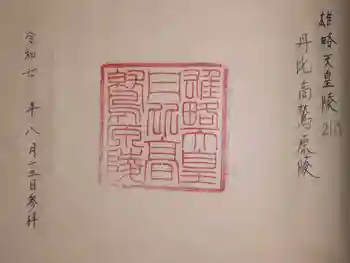 雄略天皇陵 21代
丹比高鷲原陵
雄略天皇
丹比高
鷲原陵
令和七 年八月一三日参拝